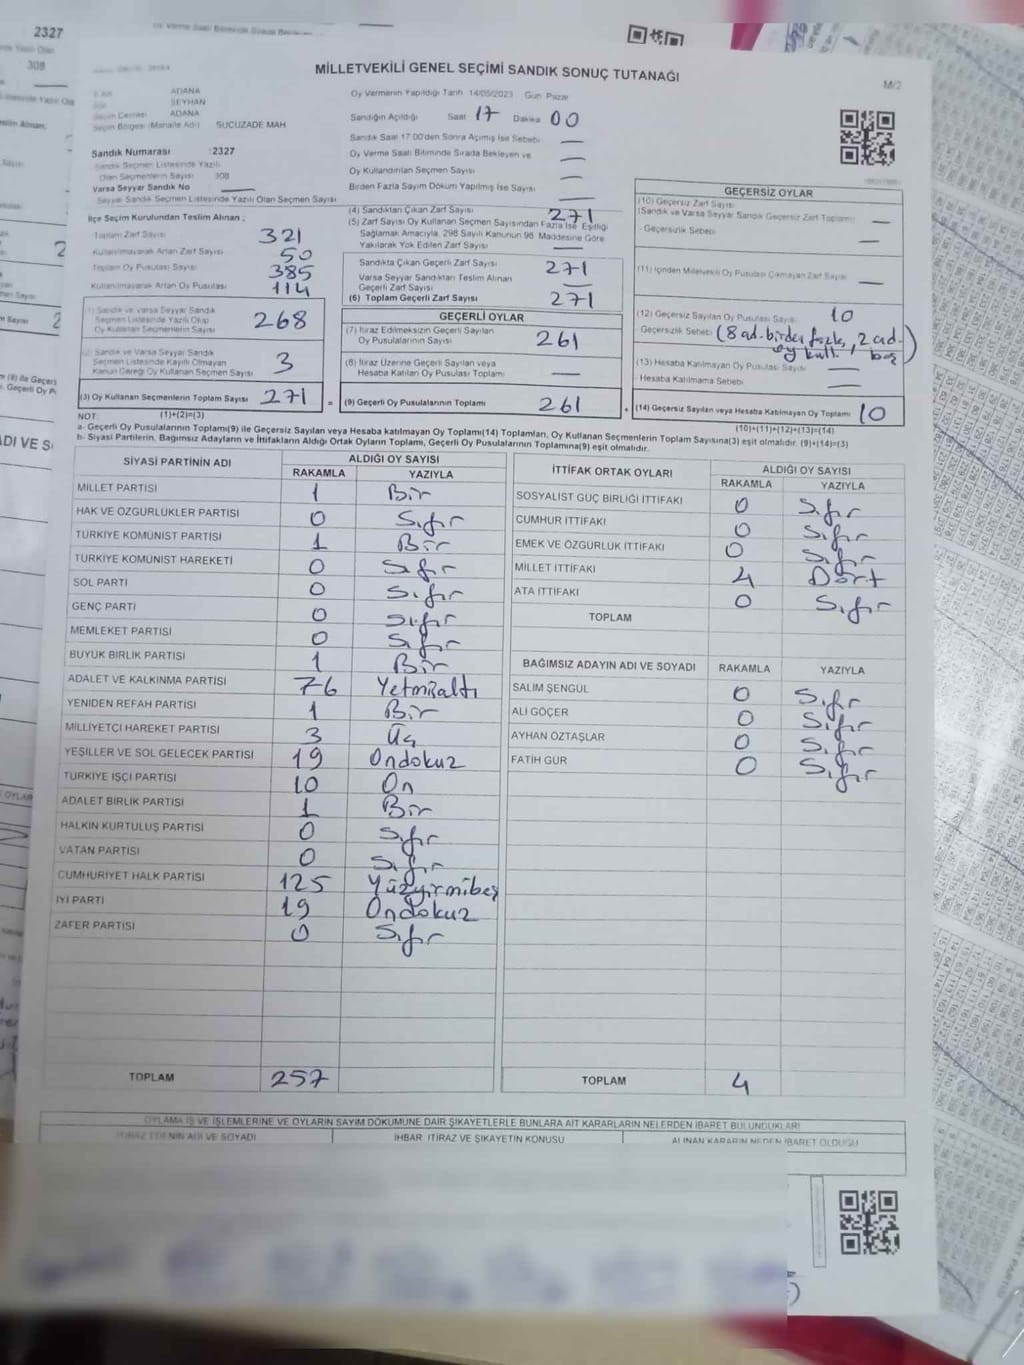 2327
308
MİLLETVEKİLİ GENEL SEÇİMİ SANDIK SONUÇ TUTANAĞI
M/2
ADANA
SEYHAN
ADANA
Seçim Bölgesi (Mahalle Adı) SUCUZADE MAH
Sandık Numarası :2327
Sandık Seçmen Listesinde Yazılı
Olan Seçmenlerin Sayısı 308
Varsa Seyyar Sandık No
Seyyar Sandık Seçmen Listesinde Yazılı Olan Seçmen Sayısı
İlçe Seçim Kurulundan Teslim Alınan ;
Toplam Zarf Sayısı 321
Kullanılmayarak Artan Zarf Sayısı 50
Toplam Oy Pusulası Sayısı 385
Kullanılmayarak Artan Oy Pusulası 114
(1) Sandık ve Varsa Seyyar Sandık
Seçmen Listesinde Yazılı Olup
Oy Kullanan Seçmenlerin Sayısı 268
(2) Sandık ve Varsa Seyyar Sandık
Seçmen Listesinde Kayıtlı Olmayan
Kanun Gereği Oy Kullanan Seçmen Sayısı 3
(3) Oy Kullanan Seçmenlerin Toplam Sayısı 271 =
Oy Vermenin Yapıldığı Tarih 14/05/2023 Gün Pazar
Sandığın Açıldığı Saat 17 Dakika 00
Sandık Saat 17:00'den Sonra Açılmış İse Sebebi —
Oy Verme Saati Bitiminde Sırada Bekleyen ve —
Oy Kullandırılan Seçmen Sayısı —
Birden Fazla Sayım Döküm Yapılmış İse Sayısı —
(4) Sandıktan Çıkan Zarf Sayısı 271
(5) Zarf Sayısı Oy Kullanan Seçmen Sayısından Fazla İse Eşitliği
Sağlamak Amacıyla, 298 Sayılı Kanunun 98. Maddesine Göre
Yakılarak Yok Edilen Zarf Sayısı —
Sandıkta Çıkan Geçerli Zarf Sayısı 271
Varsa Seyyar Sandıktan Teslim Alınan
Geçerli Zarf Sayısı —
(6) Toplam Geçerli Zarf Sayısı 271
GEÇERLİ OYLAR
(7) İtiraz Edilmeksizin Geçerli Sayılan
Oy Pusulalarının Sayısı 261
(8) İtiraz Üzerine Geçerli Sayılan veya
Hesaba Katılan Oy Pusulası Toplamı —
(9) Geçerli Oy Pusulalarının Toplamı 261
GEÇERSİZ OYLAR
(10) Geçersiz Zarf Sayısı
(Sandık ve Varsa Seyyar Sandık Geçersiz Zarf Toplamı) —
- Geçersizlik Sebebi —
(11) İçinden Milletvekili Oy Pusulası Çıkmayan Zarf Sayısı —
(12) Geçersiz Sayılan Oy Pusulası Sayısı 10
- Geçersizlik Sebebi (8 ad. birden fazla, 2 ad.
oy kull. boş)
(13) Hesaba Katılmayan Oy Pusulası Sayısı —
Hesaba Katılmama Sebebi —
(14) Geçersiz Sayılan veya Hesaba Katılmayan Oy Toplamı 10
NOT: (1)+(2)=(3) (10)+(11)+(12)+(13)=(14)
a- Geçerli Oy Pusulalarının Toplamı(9) ile Geçersiz Sayılan veya Hesaba katılmayan Oy Toplamı(14) Toplamları, Oy Kullanan Seçmenlerin Toplam Sayısına(3) eşit olmalıdır. (9)+(14)=(3)
b- Siyasi Partilerin, Bağımsız Adayların ve İttifakların Aldığı Ortak Oyların Toplamı, Geçerli Oy Pusulalarının Toplamına(9) eşit olmalıdır.
SİYASİ PARTİNİN ADI ALDIĞI OY SAYISI
RAKAMLA YAZIYLA
MİLLET PARTİSİ 1 Bir
HAK VE ÖZGÜRLÜKLER PARTİSİ 0 Sıfır
TÜRKİYE KOMÜNİST PARTİSİ 1 Bir
TÜRKİYE KOMÜNİST HAREKETİ 0 Sıfır
SOL PARTİ 0 Sıfır
GENÇ PARTİ 0 Sıfır
MEMLEKET PARTİSİ 0 Sıfır
BÜYÜK BİRLİK PARTİSİ 1 Bir
ADALET VE KALKINMA PARTİSİ 76 Yetmişaltı
YENİDEN REFAH PARTİSİ 1 Bir
MİLLİYETÇİ HAREKET PARTİSİ 3 Üç
YEŞİLLER VE SOL GELECEK PARTİSİ 19 Ondokuz
TÜRKİYE İŞÇİ PARTİSİ 10 On
ADALET BİRLİK PARTİSİ 1 Bir
HALKIN KURTULUŞ PARTİSİ 0 Sıfır
VATAN PARTİSİ 0 Sıfır
CUMHURİYET HALK PARTİSİ 125 Yüzyirmibeş
İYİ PARTİ 19 Ondokuz
ZAFER PARTİSİ 0 Sıfır
TOPLAM 257
İTTİFAK ORTAK OYLARI ALDIĞI OY SAYISI
RAKAMLA YAZIYLA
SOSYALİST GÜÇ BİRLİĞİ İTTİFAKI 0 Sıfır
CUMHUR İTTİFAKI 0 Sıfır
EMEK VE ÖZGÜRLÜK İTTİFAKI 0 Sıfır
MİLLET İTTİFAKI 4 Dört
ATA İTTİFAKI 0 Sıfır
TOPLAM
BAĞIMSIZ ADAYIN ADI VE SOYADI RAKAMLA YAZIYLA
SALİM ŞENGÜL 0 Sıfır
ALİ GÖÇER 0 Sıfır
AYHAN ÖZTAŞLAR 0 Sıfır
FATİH GÜR 0 Sıfır
TOPLAM 4
OYLAMA İŞ VE İŞLEMLERİNE VE OYLARIN SAYIM DÖKÜMÜNE DAİR ŞİKAYETLERLE BUNLARA AİT KARARLARIN NELERDEN İBARET BULUNDUKLARI
İTİRAZ EDENİN ADI VE SOYADI İHBAR İTİRAZ VE ŞİKAYETİN KONUSU ALINAN KARARIN NEDEN İBARET OLDUĞU